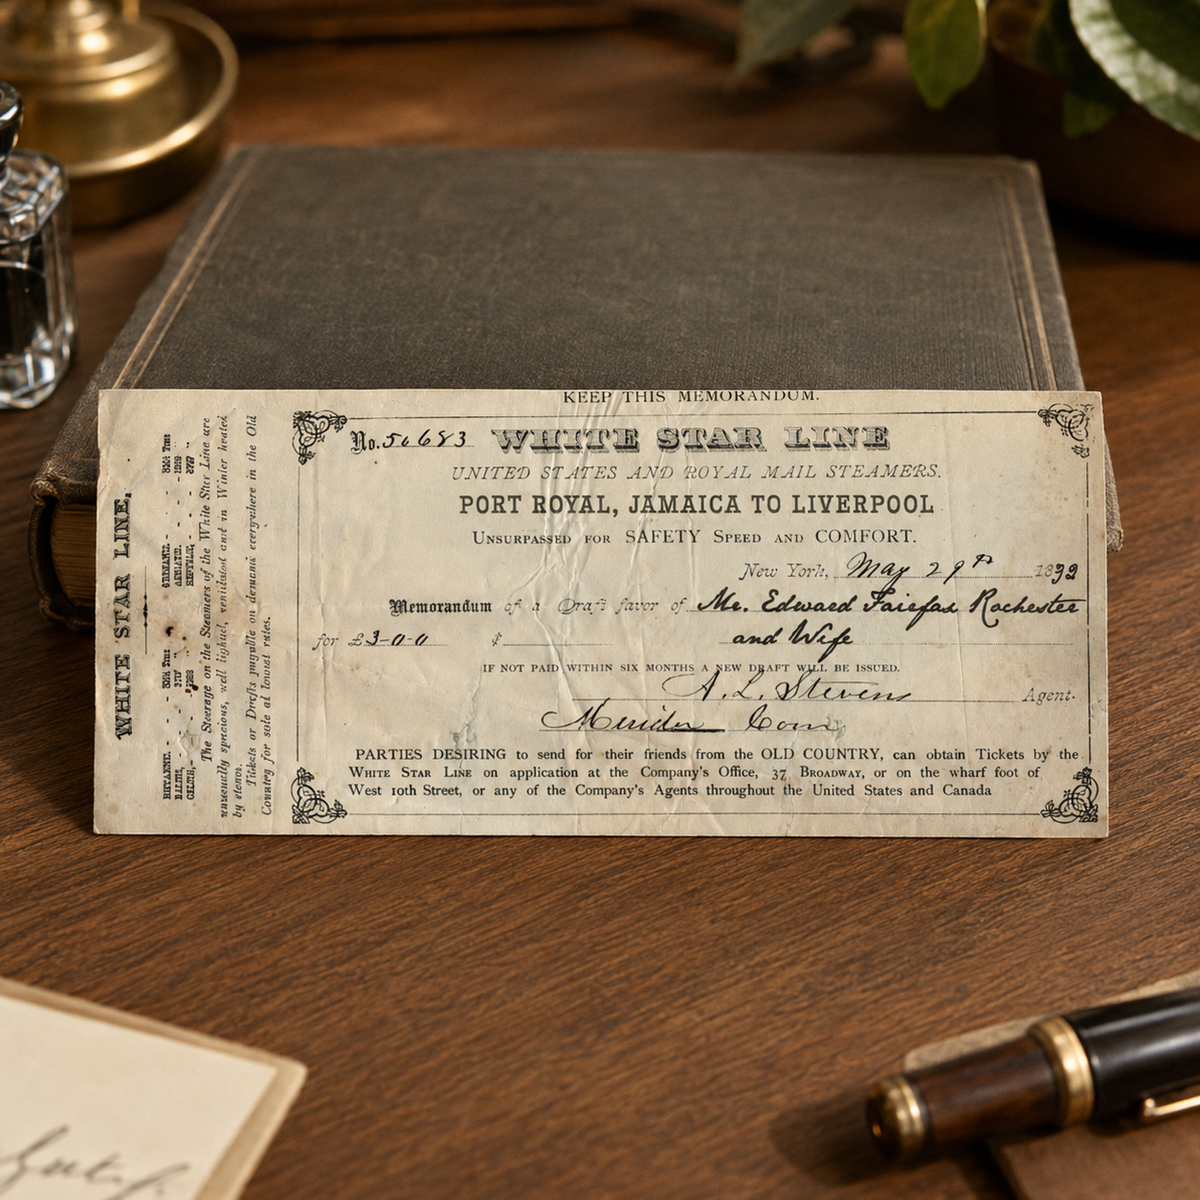 KEEP THIS MEMORANDUM.
No. 50683 WHITE STAR LINE
UNITED STATES AND ROYAL MAIL STEAMERS.
PORT ROYAL, JAMAICA TO LIVERPOOL
UNSURPASSED FOR SAFETY SPEED AND COMFORT.
New York, May 29th 1832
Memorandum of a Draft favor of Mr. Edward Fairfax Rochester
for £3-0-0 $ and Wife
IF NOT PAID WITHIN SIX MONTHS A NEW DRAFT WILL BE ISSUED.
A. L. Stevens Agent.
Meriden Conn
PARTIES DESIRING to send for their friends from the OLD COUNTRY, can obtain Tickets by the
WHITE STAR LINE on application at the Company's Office, 37 BROADWAY, or on the wharf foot of
West 10th Street, or any of the Company's Agents throughout the United States and Canada
WHITE STAR LINE.
The Steerage on the Steamers of the White Star Line are
unusually spacious, well lighted, ventilated and in Winter heated
by steam.
Tickets or Drafts payable on demand everywhere in the Old
Country for sale at lowest rates.